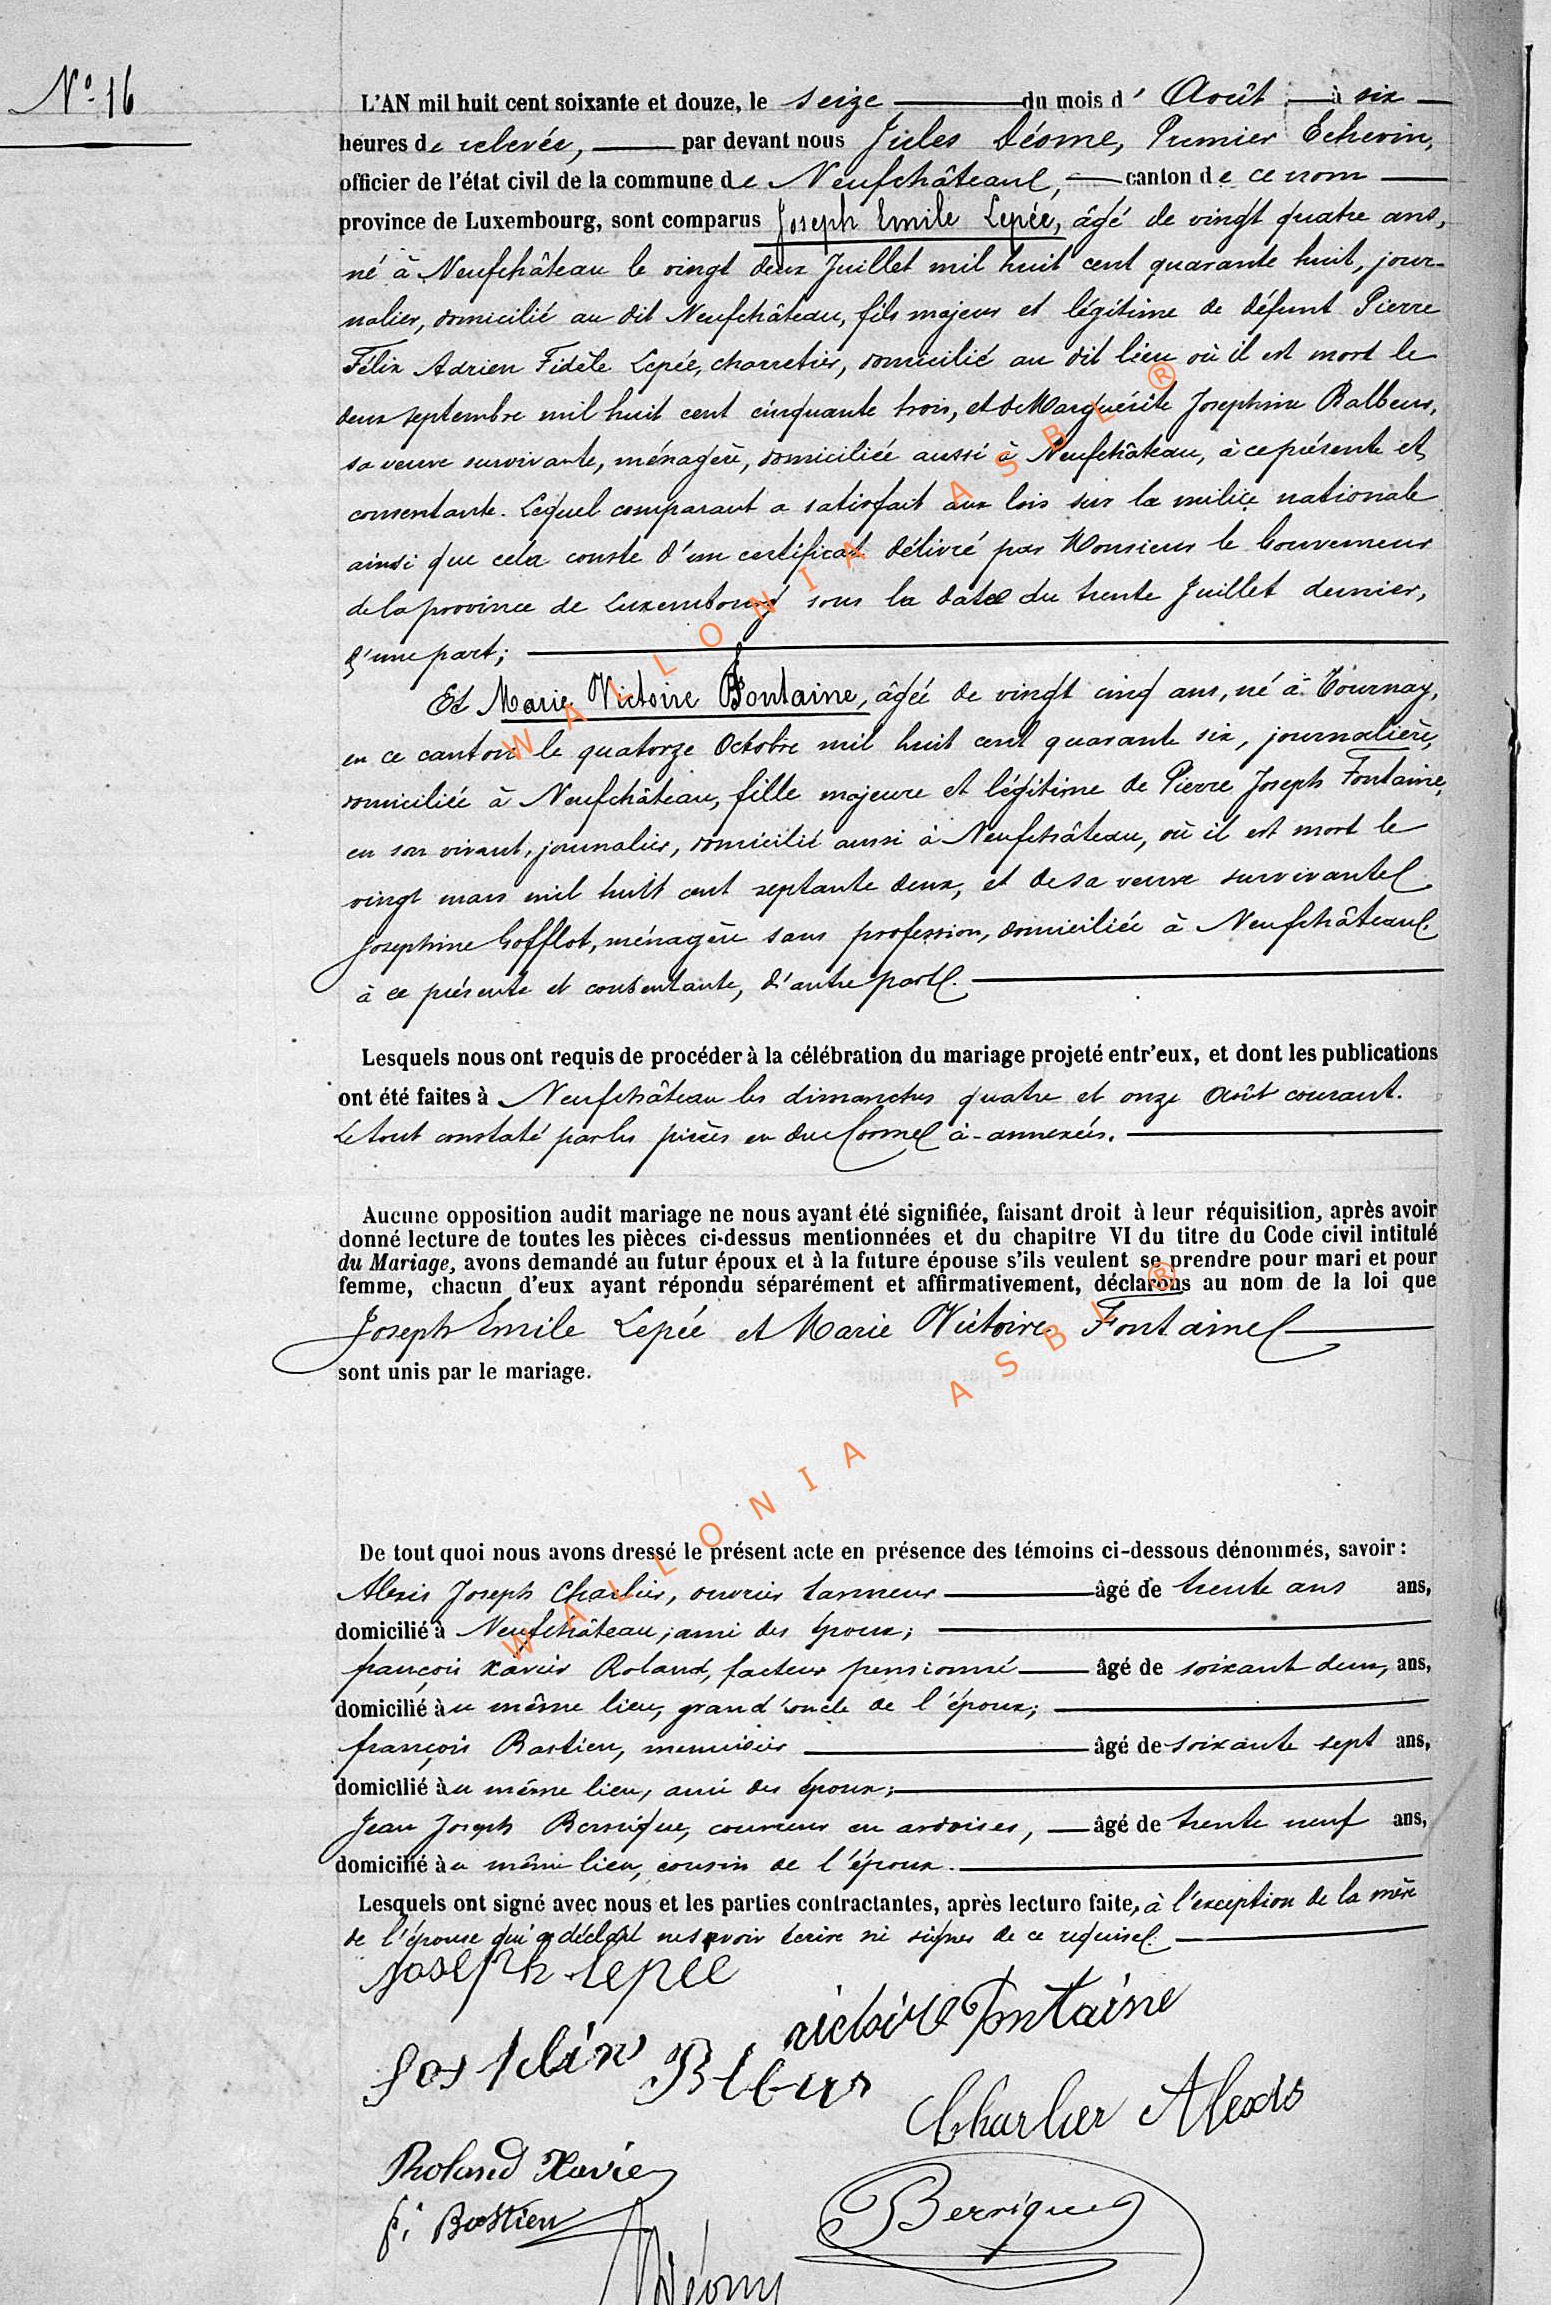 N.º 16
L'AN mil huit cent soixante et douze, le seize du mois d' Août à six
heures de relevée, par devant nous Jules Déome, Premier Echevin,
officier de l'état civil de la commune de Neufchâteau, canton de ce nom
province de Luxembourg, sont comparus Joseph Emile Lepée, âgé de vingt quatre ans,
né à Neufchâteau le vingt deux Juillet mil huit cent quarante huit, jour-
nalier, domicilié au dit Neufchâteau, fils majeur et légitime de défunt Pierre
Félix Adrien Fidèle Lepée, charretier, domicilié au dit lieu où il est mort le
deux septembre mil huit cent cinquante trois, et de Marguérite Josephine Balbeur,
sa veuve survivante, ménagère, domiciliée aussi à Neufchâteau, à ce présente et
consentante. Lequel comparant a satisfait aux lois sur la milice nationale
ainsi que cela conste d'un certificat délivré par Monsieur le Gouverneur
de la province de Luxembourg sous la date du trente Juillet dernier,
d'une part;
Et Marie Victoire Fontaine, âgée de vingt cinq ans, né à Tournay,
en ce canton le quatorze Octobre mil huit cent quarante six, journalière,
domiciliée à Neufchâteau, fille majeure et légitime de Pierre Joseph Fontaine,
en son vivant, journalier, domicilié aussi à Neufchâteau, où il est mort le
vingt mars mil huit cent septante deux, et de sa veuve survivante
Josephine Gofflot, ménagère sans profession, domiciliée à Neufchâteau
à ce présente et consentante, d'autre part.
Lesquels nous ont requis de procéder à la célébration du mariage projeté entr'eux, et dont les publications
ont été faites à Neufchâteau les dimanches quatre et onze Août courant.
Le tout constaté par les pièces en due forme à-annexées.
Aucune opposition audit mariage ne nous ayant été signifiée, faisant droit à leur réquisition, après avoir
donné lecture de toutes les pièces ci-dessus mentionnées et du chapitre VI du titre du Code civil intitulé
du Mariage, avons demandé au futur époux et à la future épouse s'ils veulent se prendre pour mari et pour
femme, chacun d'eux ayant répondu séparément et affirmativement, déclarons au nom de la loi que
Joseph Emile Lepée et Marie Victoire Fontaine
sont unis par le mariage.
De tout quoi nous avons dressé le présent acte en présence des témoins ci-dessous dénommés, savoir :
Alexis Joseph Charlier, ouvrier tanneur âgé de trente ans ans,
domicilié à Neufchâteau, ami des époux;
françois Xavier Roland, facteur pensionné âgé de soixant deux, ans,
domicilié au même lieu, grand'oncle de l'époux;
françois Bastien, menuisier âgé de soixante sept ans,
domicilié au même lieu, ami des époux;
Jean Joseph Bernique, couvreur en ardoises, âgé de trente neuf ans,
domicilié au même lieu, cousin de l'époux.
Lesquels ont signé avec nous et les parties contractantes, après lecture faite, à l'exception de la mère
de l'épouse qui a déclaré ne savoir écrire ni signer de ce requise.
Joseph Lepée
victoire Fontaine
Charlier Alexis
Roland Xavier
f. Bastien
Bernique
Déome
WALLONIA ASBL ®
WALLONIA ASBL ®